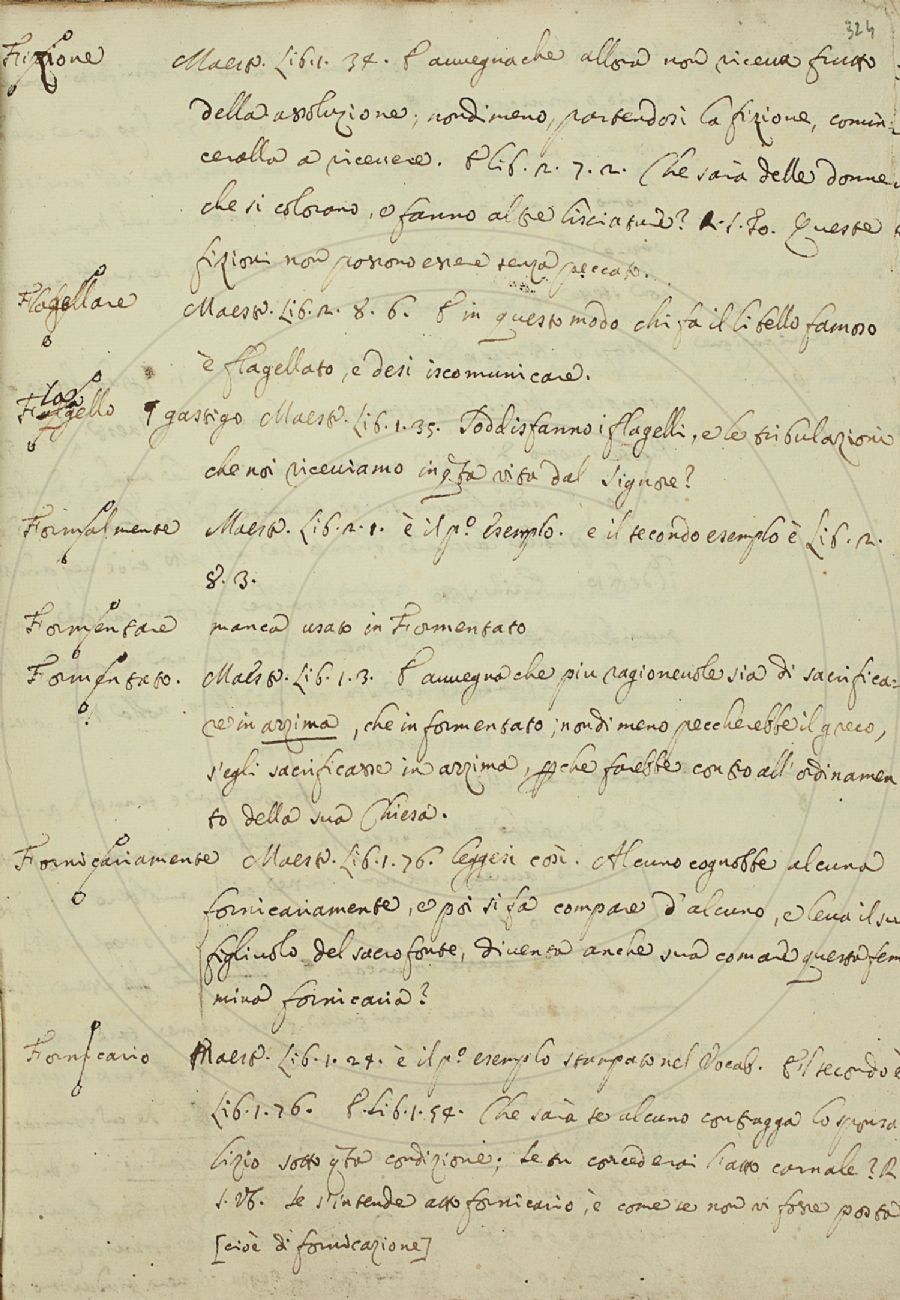 324
Fizione Maestr. Lib. 1. 34. E auuegnache allora non riceua frutto
della assoluzione; nondimeno, partendosi la fizione, comin=
ceralla a riceuere. E lib. 2. 7. 2. Che sarà delle donne
che si colorano, e fanno altre lisciature? Queste
fizioni non possono essere senza peccato.
Flagellare Maestr. Lib. 2. 8. 6. E in questo modo chi fa il libello famoso
è flagellato, e desi iscomunicare.
Flagello gastigo Maestr. Lib. 1. 35. Soddisfanno i flagelli, e le tribulazioni
che noi riceuiamo in qta vita dal Signore?
Formalmente Maestr. Lib. 2. 1. è il po. esempio. e il secondo esemplo è Lib. 2.
8. 3.
Formentare manca usato in Formentato
Formentato. Maestr. Lib. 1. 3. E auuegnache piu ragioneuole sia di sacrifica=
re in azzima, che in formentato; nondimeno peccherebbe il greco,
s'egli sacrificasse in azzima, pche farebbe contro all'ordinamen
to della sua Chiesa.
Fornicariamente Maestr. Lib. 1. 76. leggesi così. Alcuno cognobbe alcuna
fornicariamente, e poi si fa compare d'alcuno, e leua il su
figliuolo del sacro fonte, diuenta anche sua comare questa fem
mina fornicaria?
Fornicario Maestr. Lib. 1. 24. è il po. esemplo stampato nel Vocab. E'l secondo è
Lib. 1. 76. E. Lib. 1. 54. Che sarà se alcuno contragga lo sponsa
lizio sotto qta condizione; Se tu concederai l'atto carnale? R
Se s'intende atto fornicario, è come se non vi fosse posta
[cioè di fornicazione]